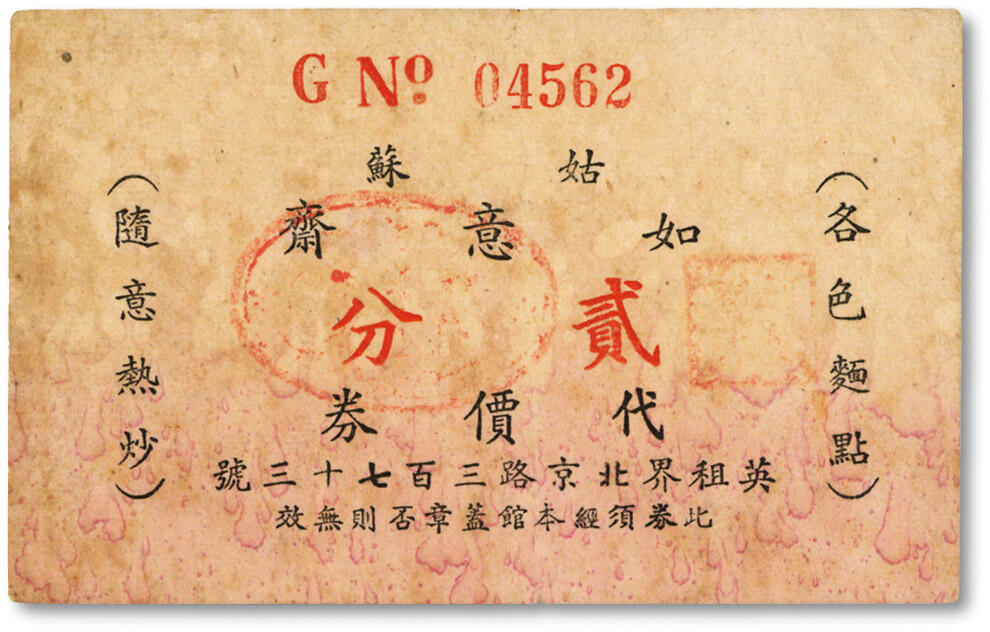 G Nº 04562
姑蘇
如意齋
貳分
代價券
英租界北京路三百七十三號
此券須經本館蓋章否則無效
（各色麵點）
（隨意熱炒）